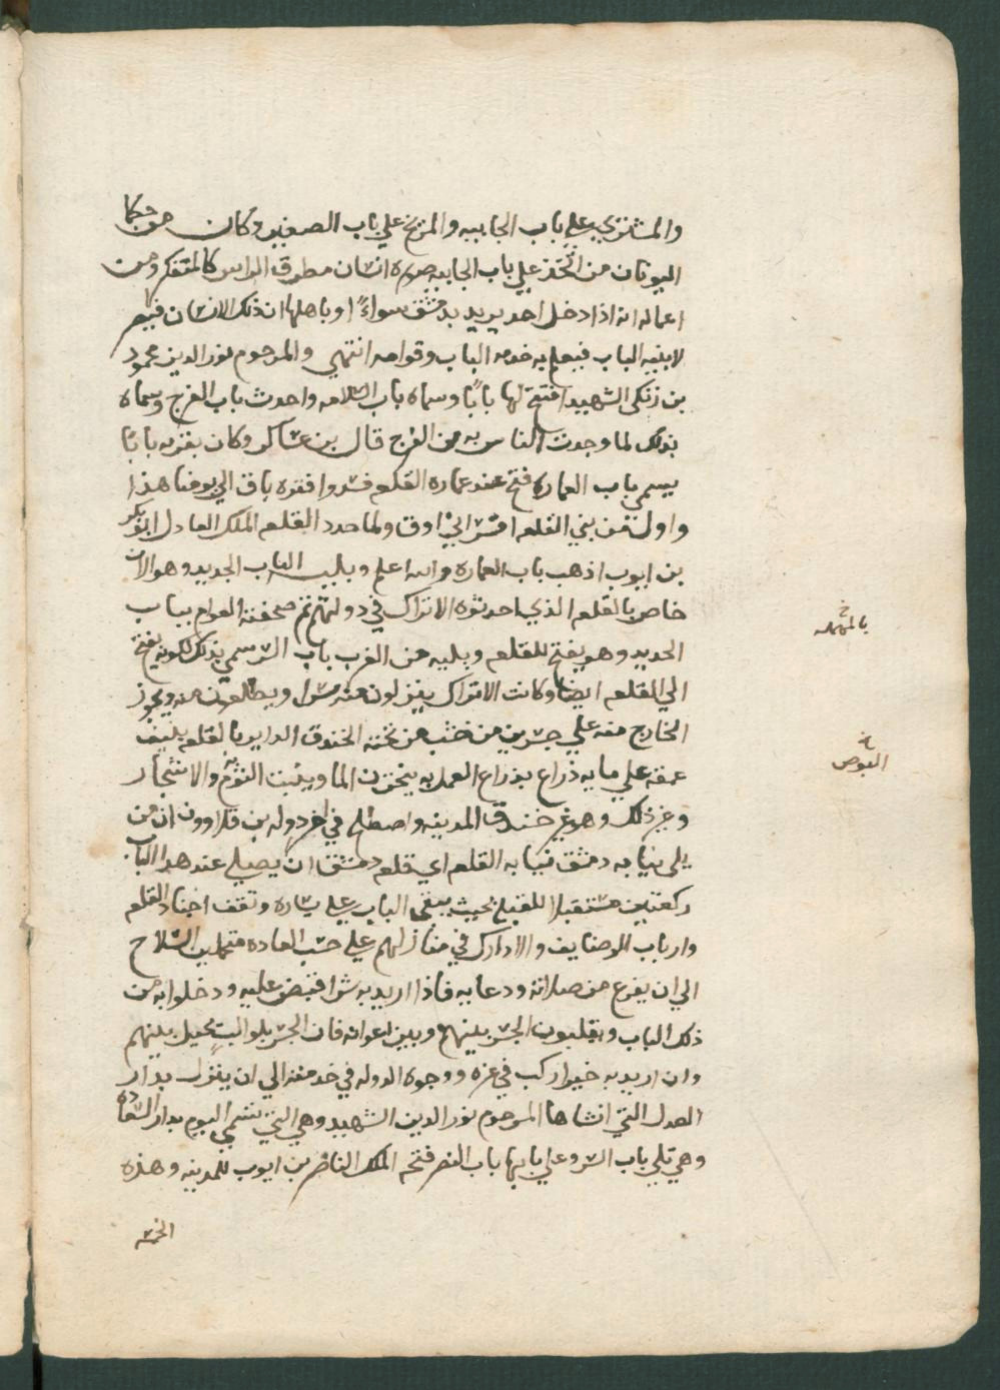 والمشتري علي باب الجابيه والمريخ علي باب الصغير وكان من حكما
اليونان من اتخذ علي باب الجابيه صورة انسان مطرق الراس كالمتفكر ومن
اعماله انه اذا دخل احد يريد بدمشق سواءً او باهلها ان ذلك الانسان
لابنيه الباب فيعلم به خدمه الباب وقوامه انتهي والمرحوم نور الدين محمود
بن زنكي الشهيد افتتح لها بابًا وسماه باب السلامه واحدث باب الفرج وسماه
بذلك لما وجدت الناس به من الفرج قال بن عساكر وكان بقربه بابًا
يسمي باب العماره فتح عند عماره القلعه فسد واثره باق الي يومنا هذا
واول من بني القلعه اتسز ولما جدد القلعه الملك العادل ابو بكر
بن ايوب اذهب باب العماره والله اعلم ويليه الباب الجديد وهو الان
خاص بالقلعه الذي احدثوه الاتراك في دولتهم ثم صحفته العوام بباب
الحديد وهو يفتح للقلعه ويليه من الغرب باب السر سمي بذلك لكونه يفتح
الي القلعه ايضا وكانت الاتراك ينزلون منه سرا ويطلعون منه ويجوز
الخارج منه علي جسرين من خشب من تحته الخندق الداير بالقلعه ينيف
عمقه علي مايه ذراع بذراع العمل به يخزن الما وينبت والاشجار
وغير ذلك وهو غير خندق المدينه واصطلح في اخر دوله بن قلاوون ان من
يلي نيابه دمشق نيابه القلعه اي قلعه دمشق ان يصلي عند هذا الباب
ركعتين مستقبلا للقبله بحيث يبقي الباب علي يساره وتقف اجناد القلعه
وارباب الوضايف والادارك في منازلهم علي حسب العاده متحملين السلاح
الي ان يفرغ من صلاته ودعايه فاذا اريد به شرا قبض عليه ودخلوا به من
ذلك الباب ويقلبون الجسر بينهم وبين اعوانه فان الجسر يحيل بينهم
وان اريد به خيرا ركب في عزه ووجوه الدوله في خدمته الي ان ينزل بدار
العدل التي انشاها المرحوم نور الدين الشهيد وهي التي تسمي اليوم بدار السعاده
وهي تلي باب السر وعلي بابها باب النصر فتحه الملك الناصر بن ايوب للمدينه وهذه
الخمسه
خ
بالمهمله
خ
البوص